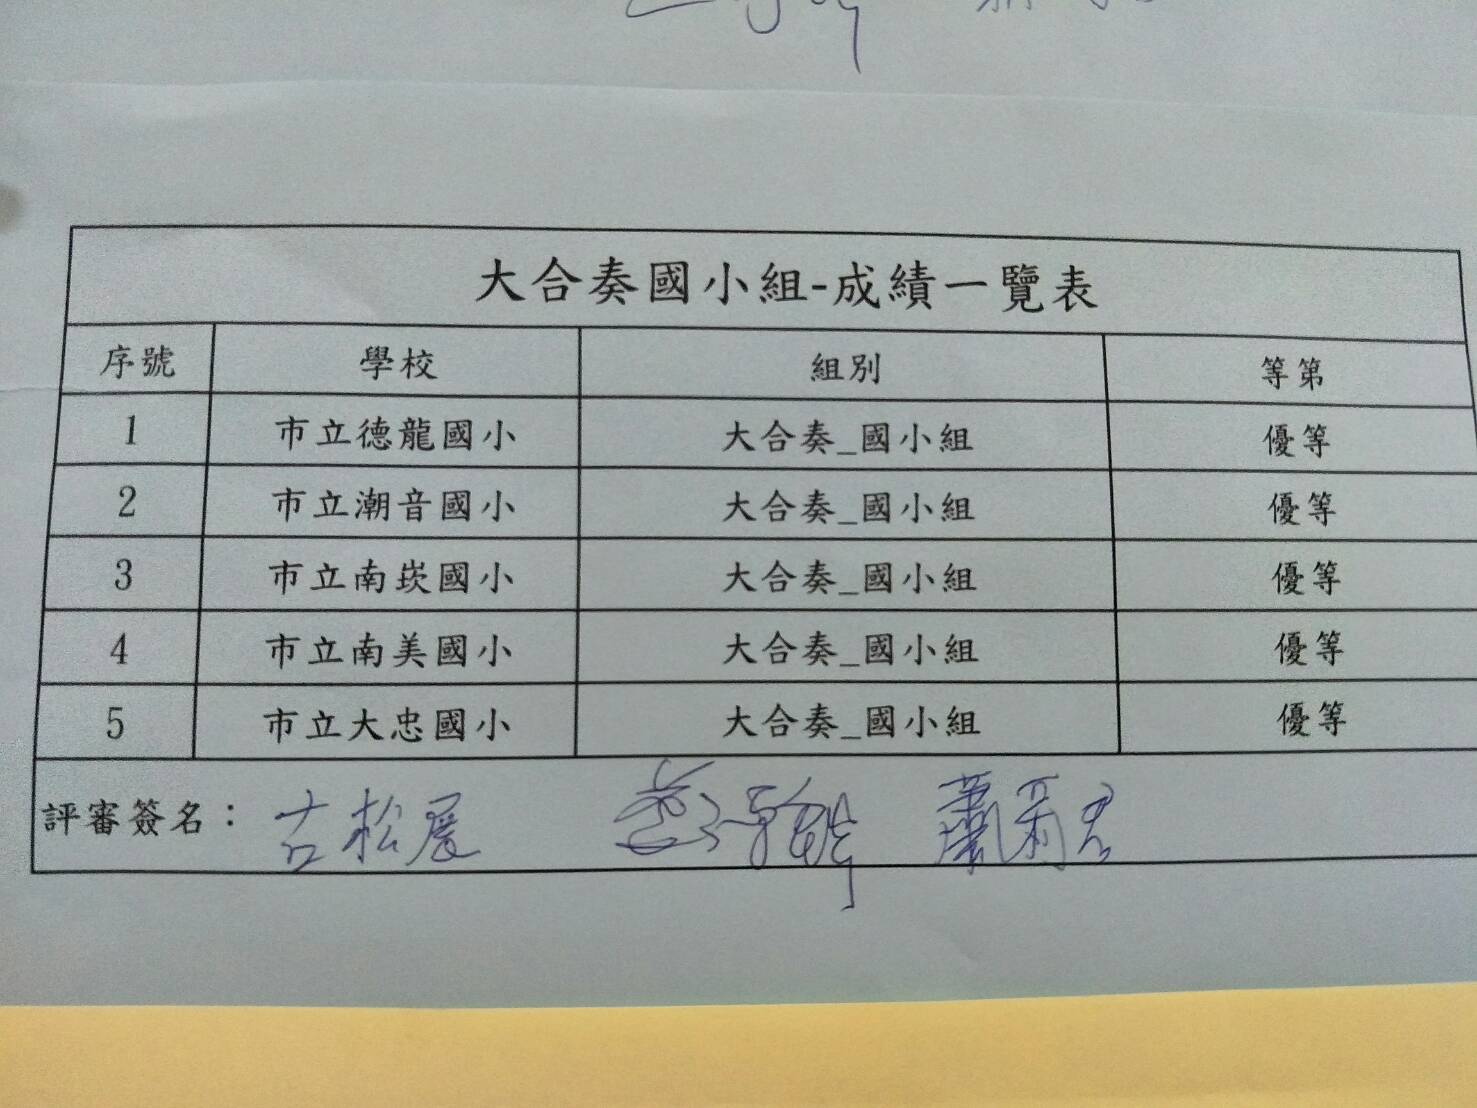 大合奏國小組-成績一覽表
序號 學校 組別 等第
1 市立德龍國小 大合奏_國小組 優等
2 市立潮音國小 大合奏_國小組 優等
3 市立南崁國小 大合奏_國小組 優等
4 市立南美國小 大合奏_國小組 優等
5 市立大忠國小 大合奏_國小組 優等
評審簽名： 古松展